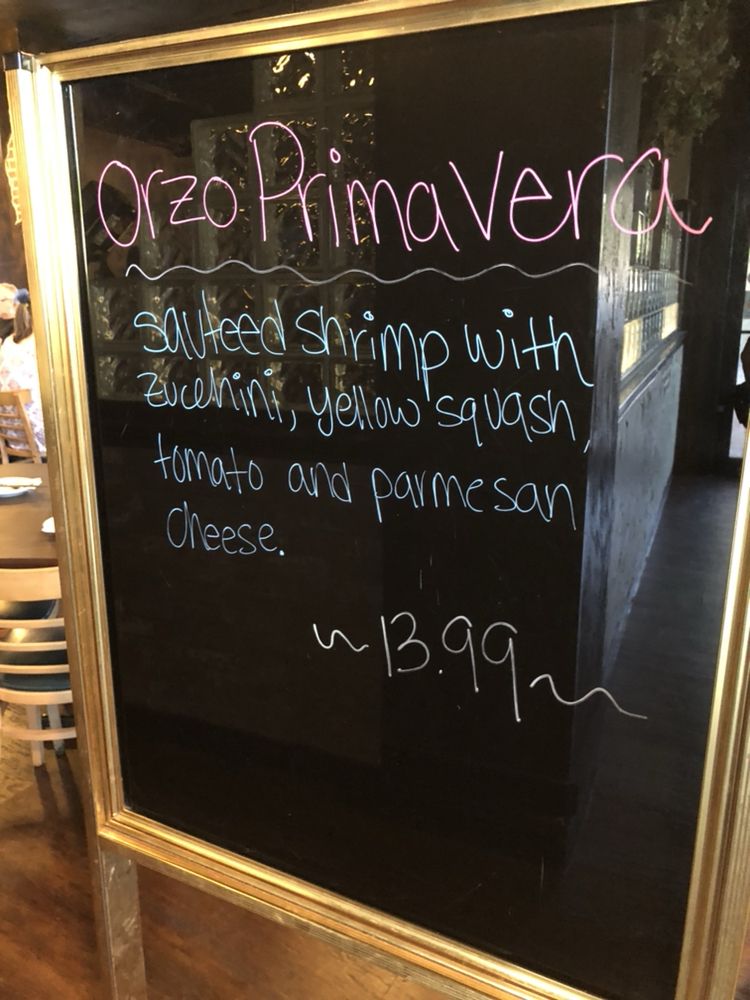 Orzo Primavera
sauteed shrimp with
zucchini, yellow squash,
tomato and parmesan
cheese.
~13.99~